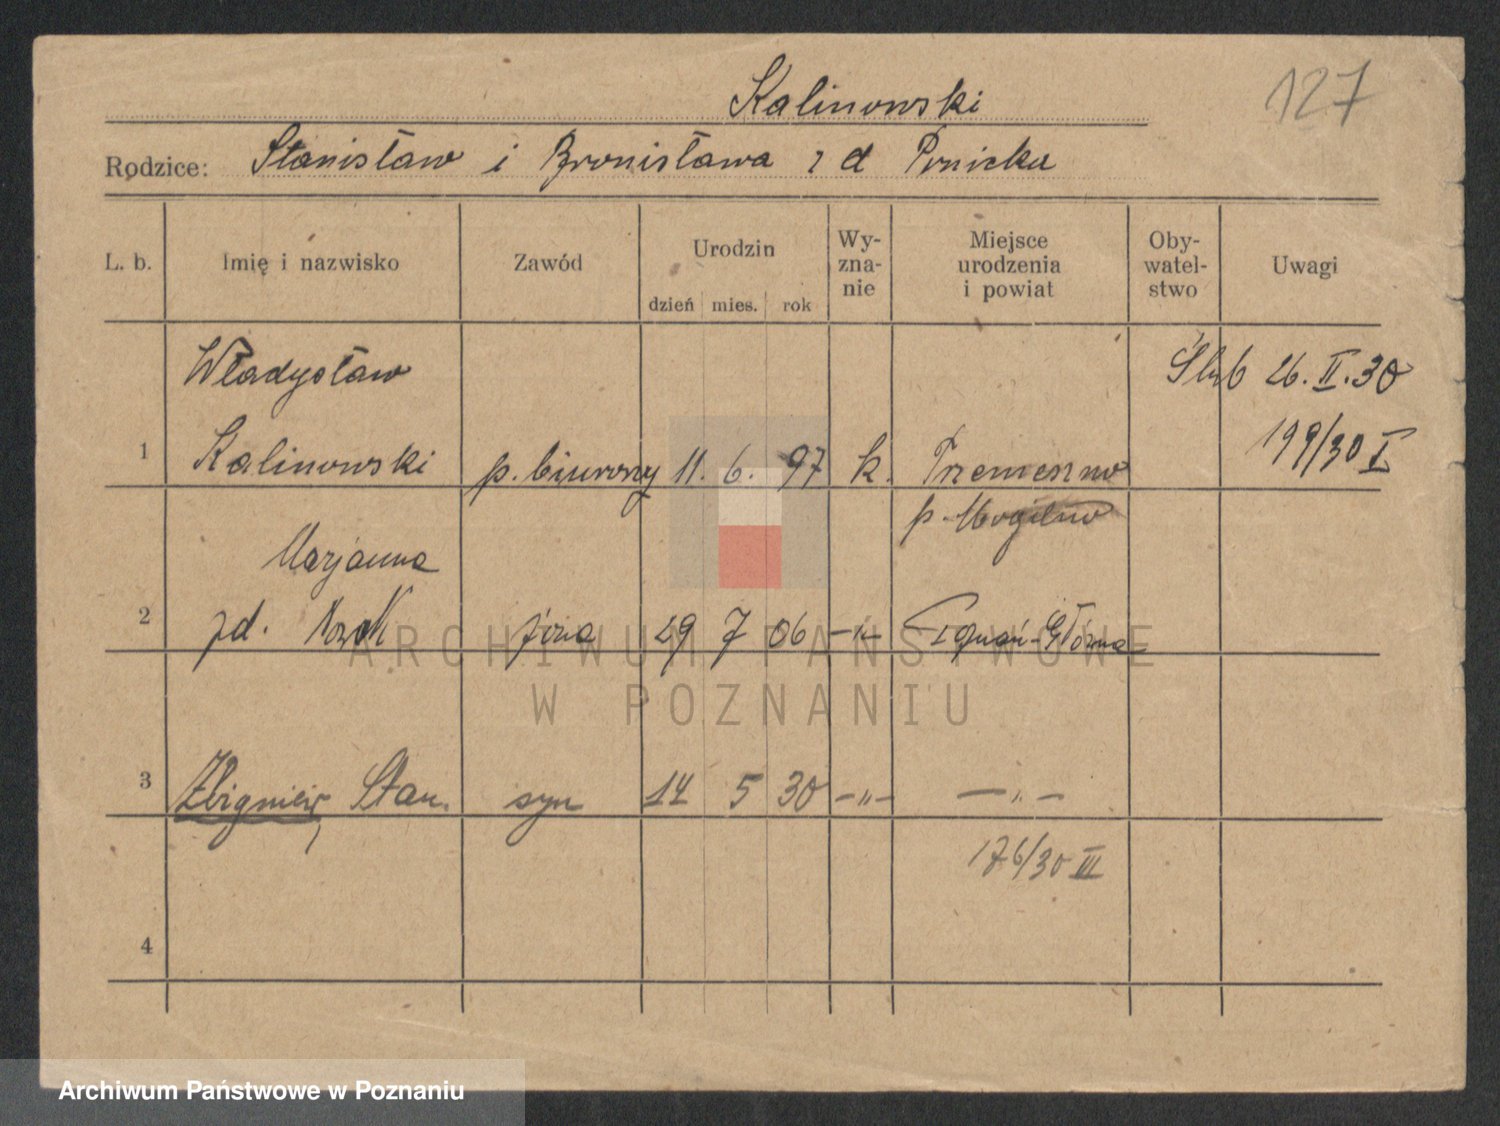 127
Kalinowski
Rodzice: Stanisław i Bronisława z d Ponicka
L. b. Imię i nazwisko Zawód Urodzin dzień mies. rok Wy-zna-nie Miejsce urodzenia i powiat Oby-watel-stwo Uwagi
Władysław Ślub 26.II.30
1 Kalinowski p. biurowy 11. 6. 97 k. Trzemeszno 199/30 I
p. Mogilno
Marjanna
2 zd. Nowak żona 29 7 06 -"- Poznań-Główna
3 Zbigniew Stan. syn 14 5 30 -"- -"-
176/30 III
4
ARCHIWUM PAŃSTWOWE
W POZNANIU
Archiwum Państwowe w Poznaniu